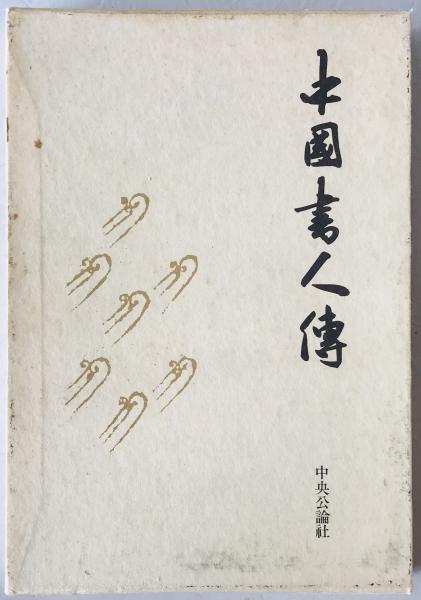 中國書人傳
中央公論社